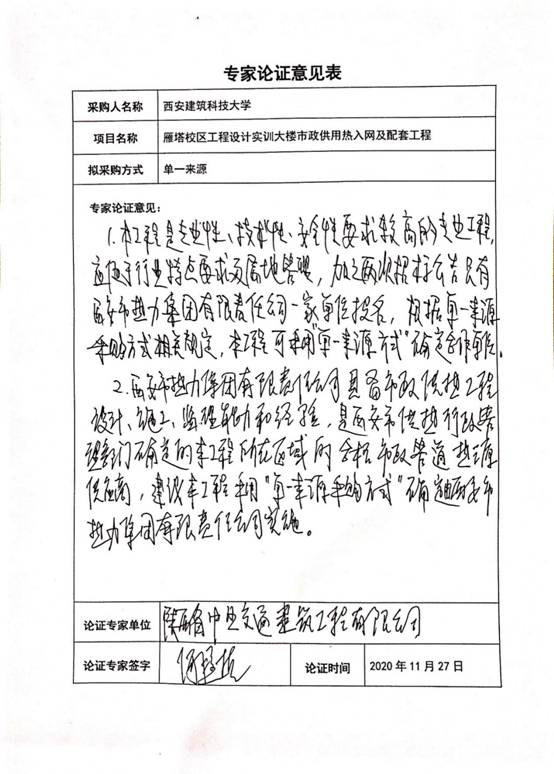 专家论证意见表
采购人名称 西安建筑科技大学
项目名称 雁塔校区工程设计实训大楼市政供用热入网及配套工程
拟采购方式 单一来源
专家论证意见:
1.本工程是专业性、技术性、安全性要求较高的专业工程,
应便于行业特点要求及属地管理,加之两次招标公告只有
西安市热力集团有限责任公司一家单位报名,根据单一来源
采购方式相关规定,本工程可采用"单一来源方式"确定合作单位。
2.西安市热力集团有限责任公司具备市政供热工程
设计、施工、监理能力和经验,是西安市供热行政管
理部门确定的本工程所在区域的合格市政管道热源
供应商,建议本工程采用"单一来源采购方式"确定西安市
热力集团有限责任公司实施。
论证专家单位 陕西省中业交通建筑工程有限公司
论证专家签字 论证时间 2020年11月27日